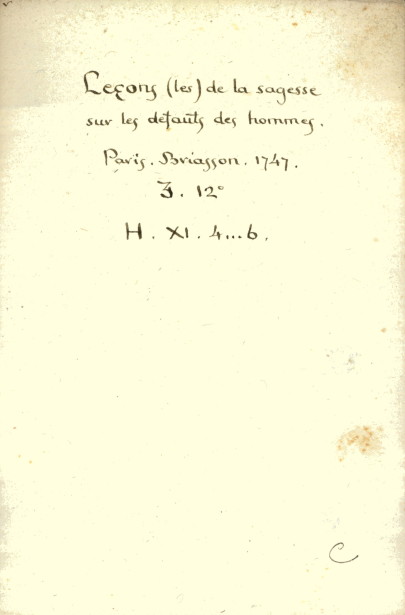 Leçons (les) de la sagesse
sur les défauts des hommes.
Paris. Briasson. 1747.
3. 12°
H. XI. 4...6.
C